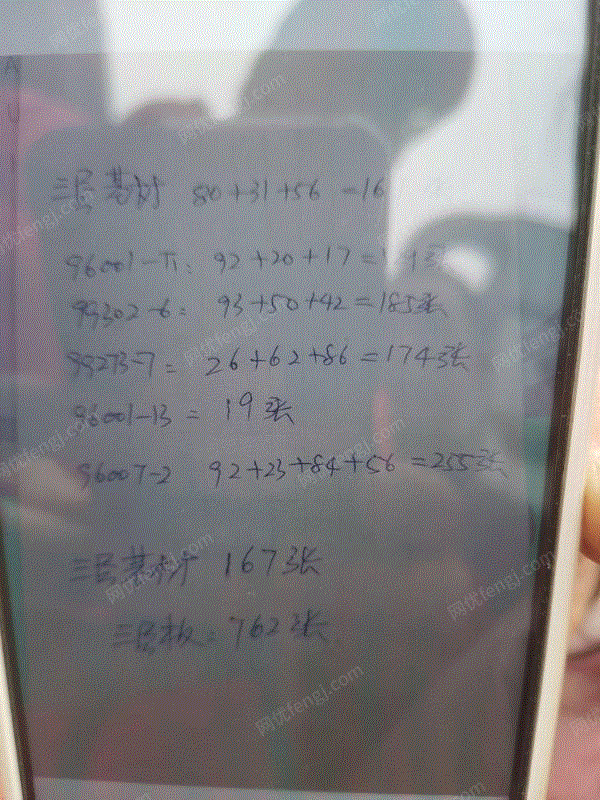 三层基材 80+31+56=16
96001-11: 92+20+17=1 9张
99302-6: 93+50+42=185张
99273-7= 26+62+86=174张
96001-13= 19张
96007-2 92+23+84+56=255张
三层基材 167张
三层板: 762张